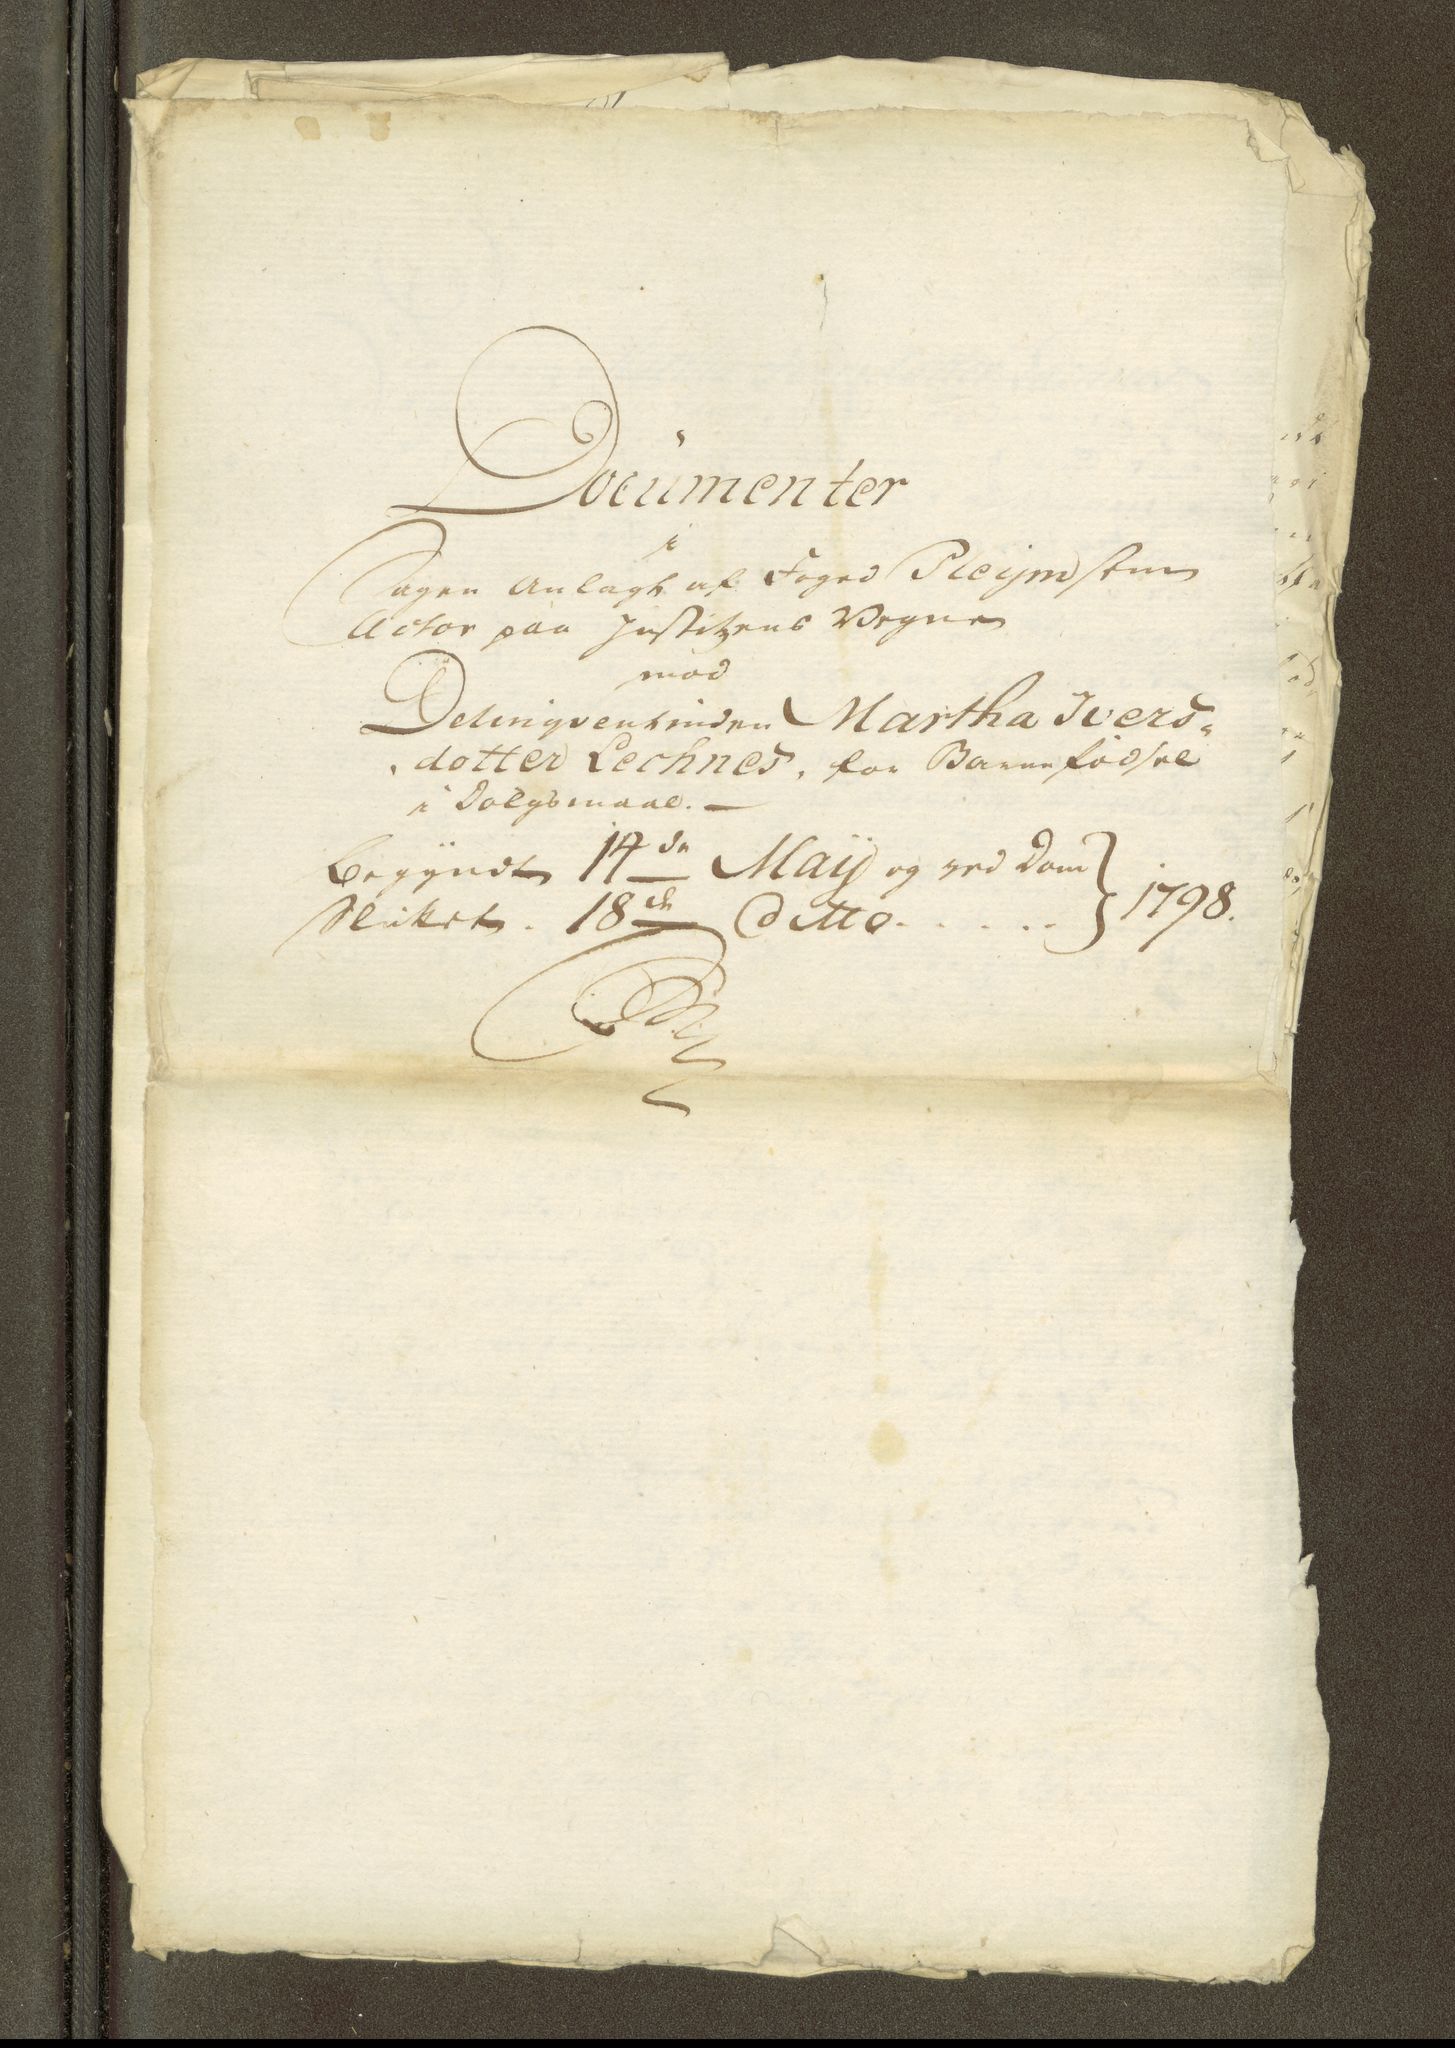 Documenter
i
Sagen Anlagt af Foged Pleijm som
Actor paa Justitzens Vegne
mod
Delinqventinden Martha Ivers=
dotter Lechnes, for Barnefødsel
i Dølgsmaal.
begÿndt 14de Maÿ og ved Dom } 1798.
Sluttet . 18de Ditto . . . . .